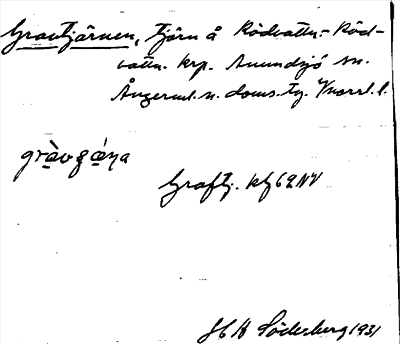 Gravtjärnen, Tjärn å Rödvattn-Röd-
vattn. krp. Anundsjö sn.
Ångerml. n. doms. tg. V/norrl. l.
gràvʒǽṇa
Graftj. kbl 62 NV
H Söderberg 1931